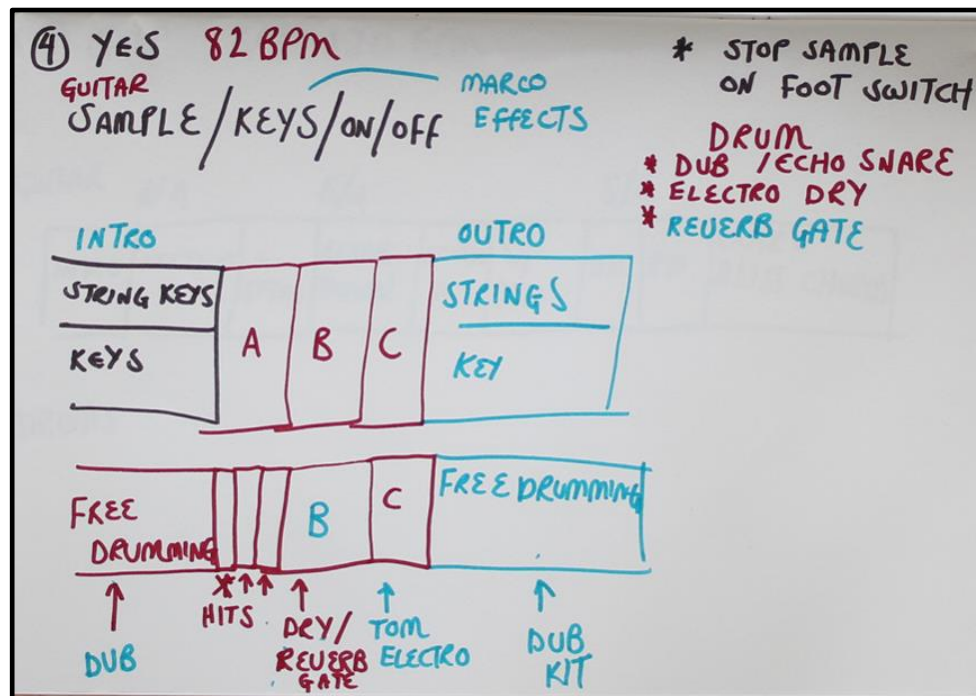 ④ YES 82 BPM
GUITAR
SAMPLE/KEYS/ON/OFF
MARCO
EFFECTS
* STOP SAMPLE
ON FOOT SWITCH
DRUM
* DUB /ECHO SNARE
* ELECTRO DRY
* REVERB GATE
INTRO
OUTRO
STRING KEYS
KEYS
A B C
STRINGS
KEY
FREE
DRUMMING
B C
FREE DRUMMING
* HITS
DUB
DRY/
REVERB
GATE
TOM
ELECTRO
DUB
KIT